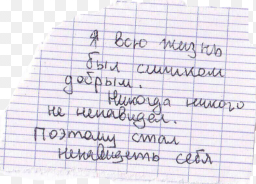 Я всю жизнь
был слишком
добрым.
Никогда никого
не ненавидел.
Поэтому стал
ненавидеть себя